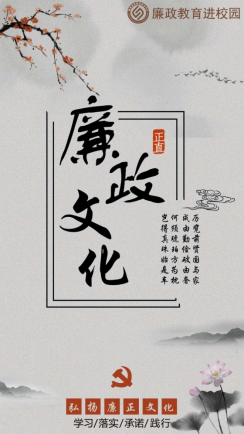 廉政教育进校园
廉政文化
正直
历览前贤国与家
成由勤俭破由奢
何须琥珀方为枕
岂得真珠始是车
弘扬廉正文化
学习/落实/承诺/践行